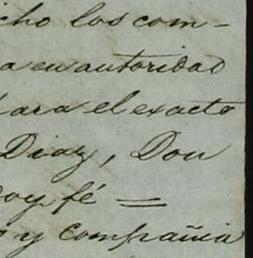 cho los com-
a en autoridad
para el exacto
Diaz, Don
doy fé =
as y compañia